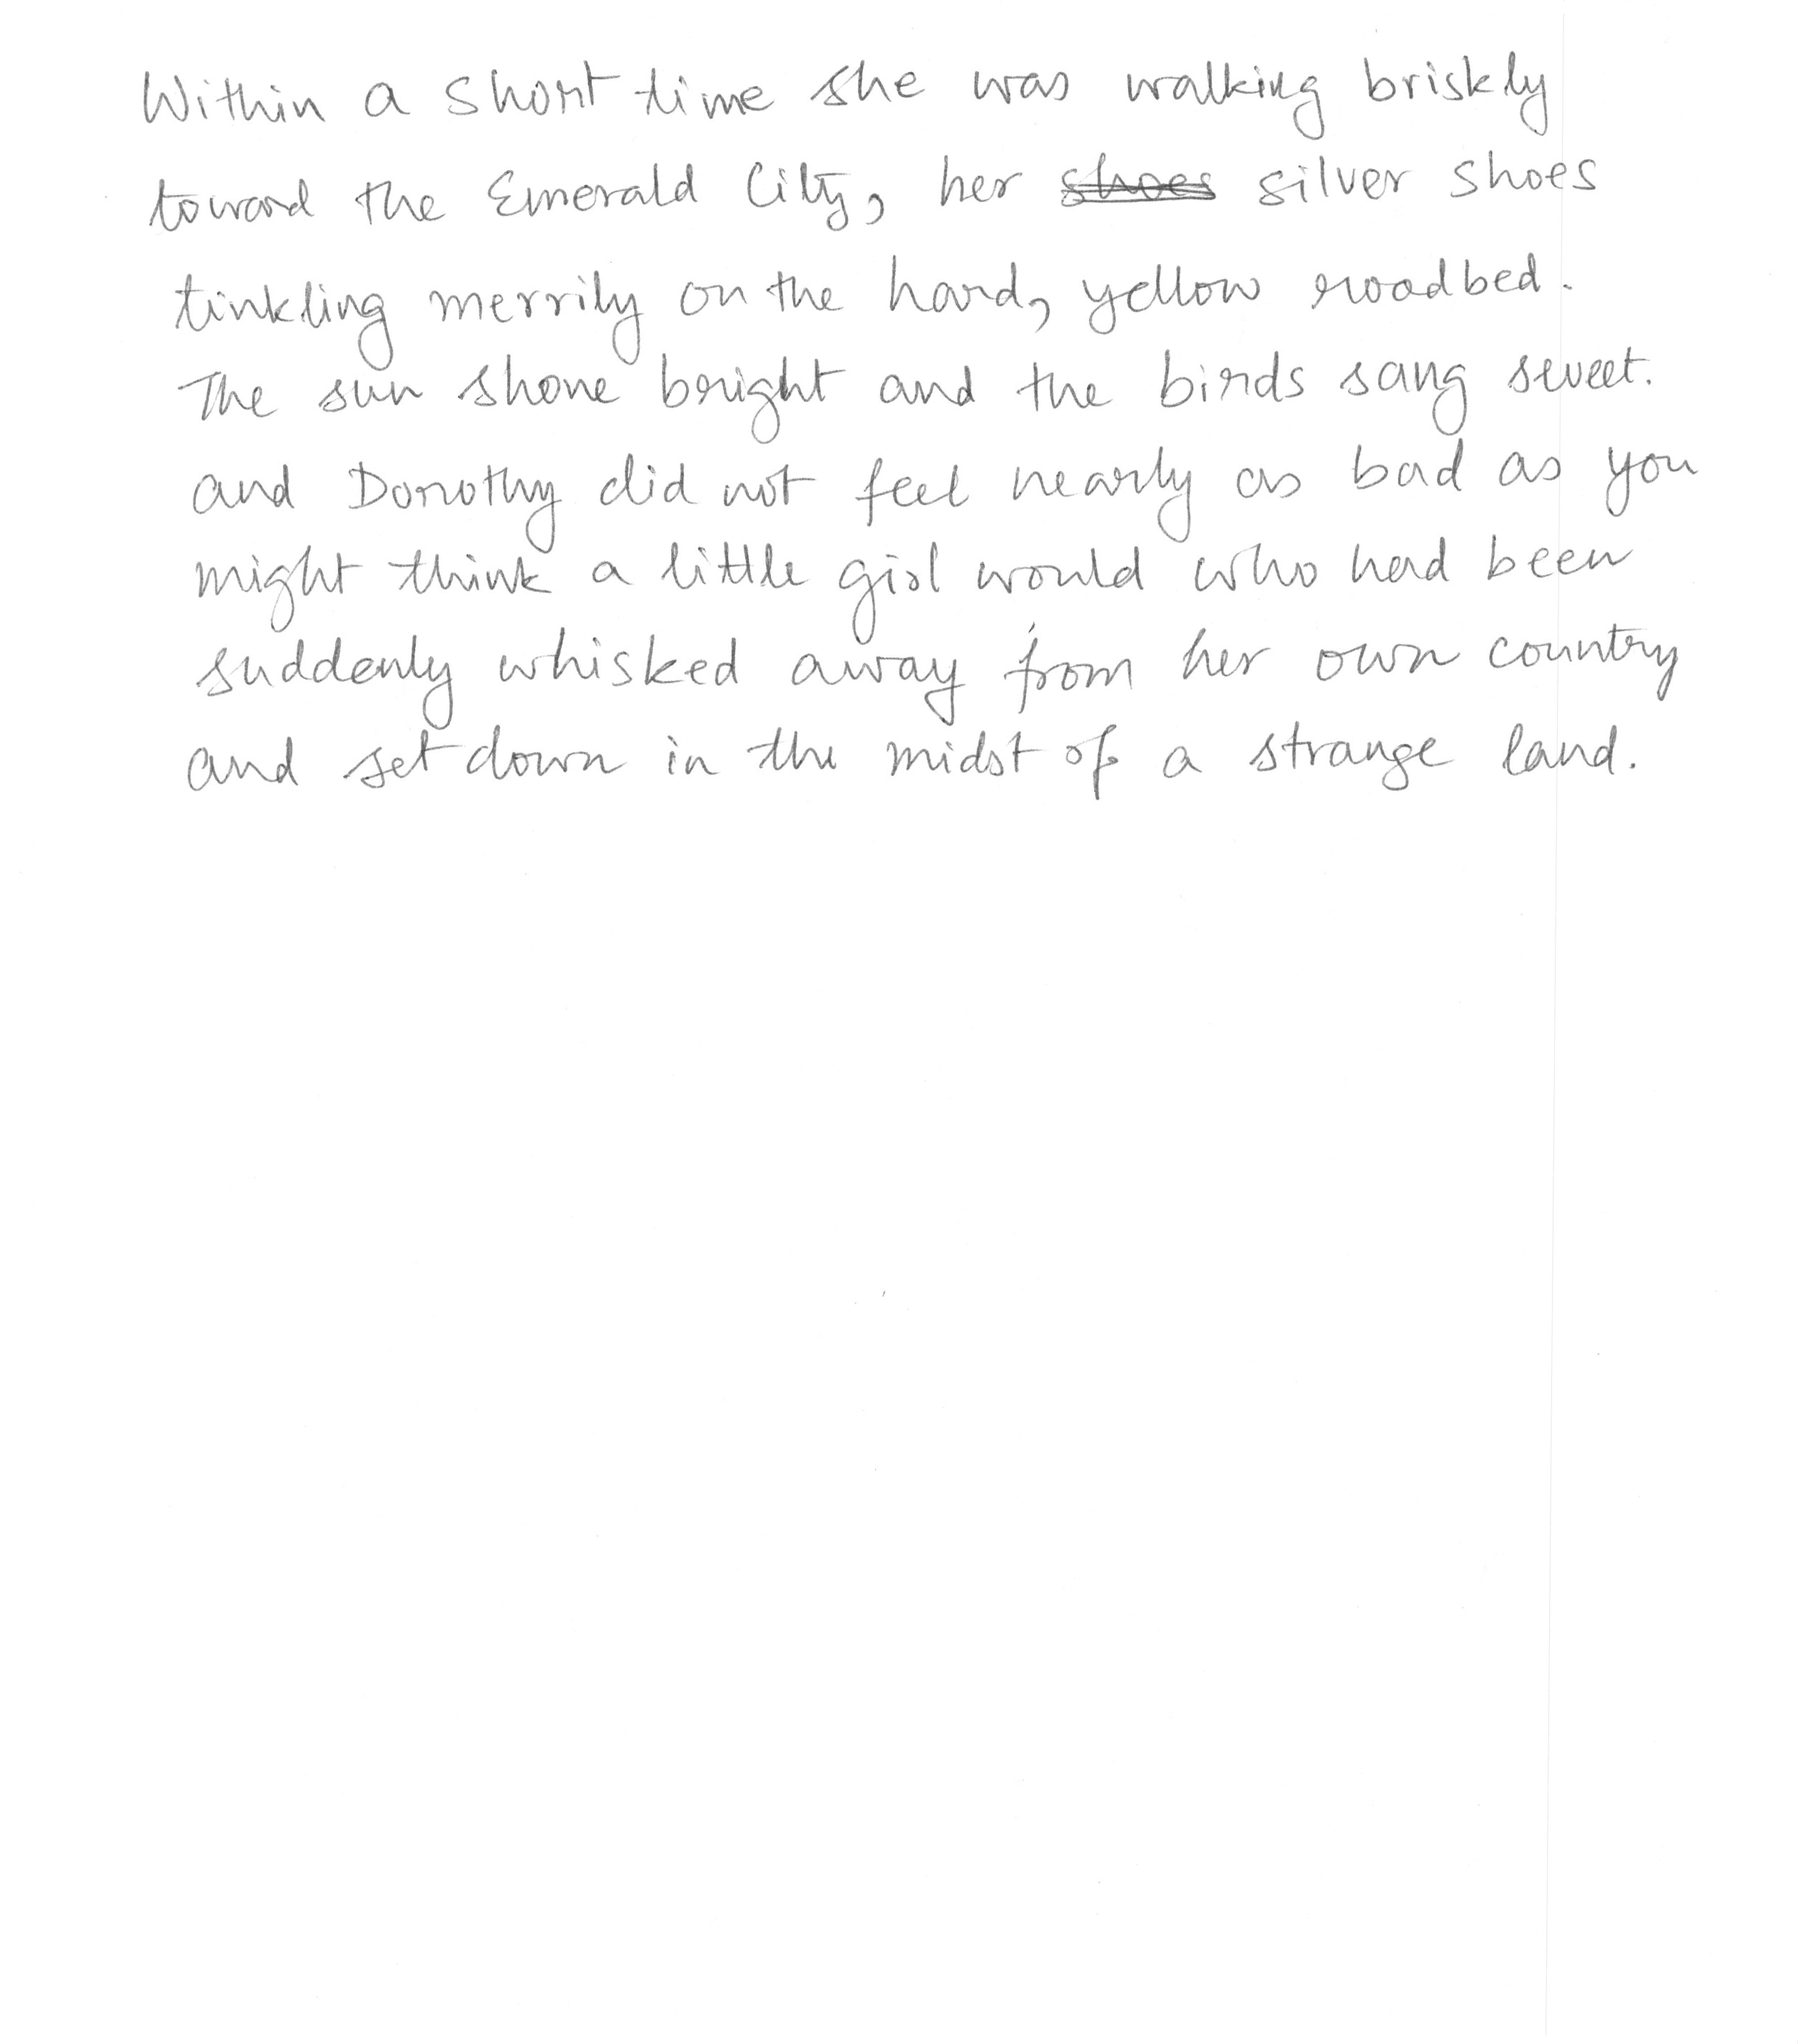 Within a short time she was walking briskly
toward the Emerald City, her shoes silver shoes
tinkling merrily on the hard, yellow roadbed.
The sun shone bright and the birds sang sweet.
and Dorothy did not feel nearly as bad as you
might think a little girl would who had been
suddenly whisked away from her own country
and set down in the midst of a strange land.